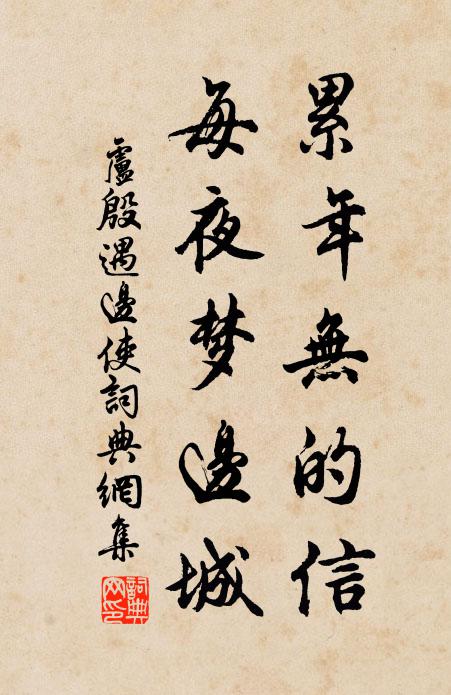 累年無的信
每夜梦邊城
盧殷遇邊使詞典網集
詞典网印